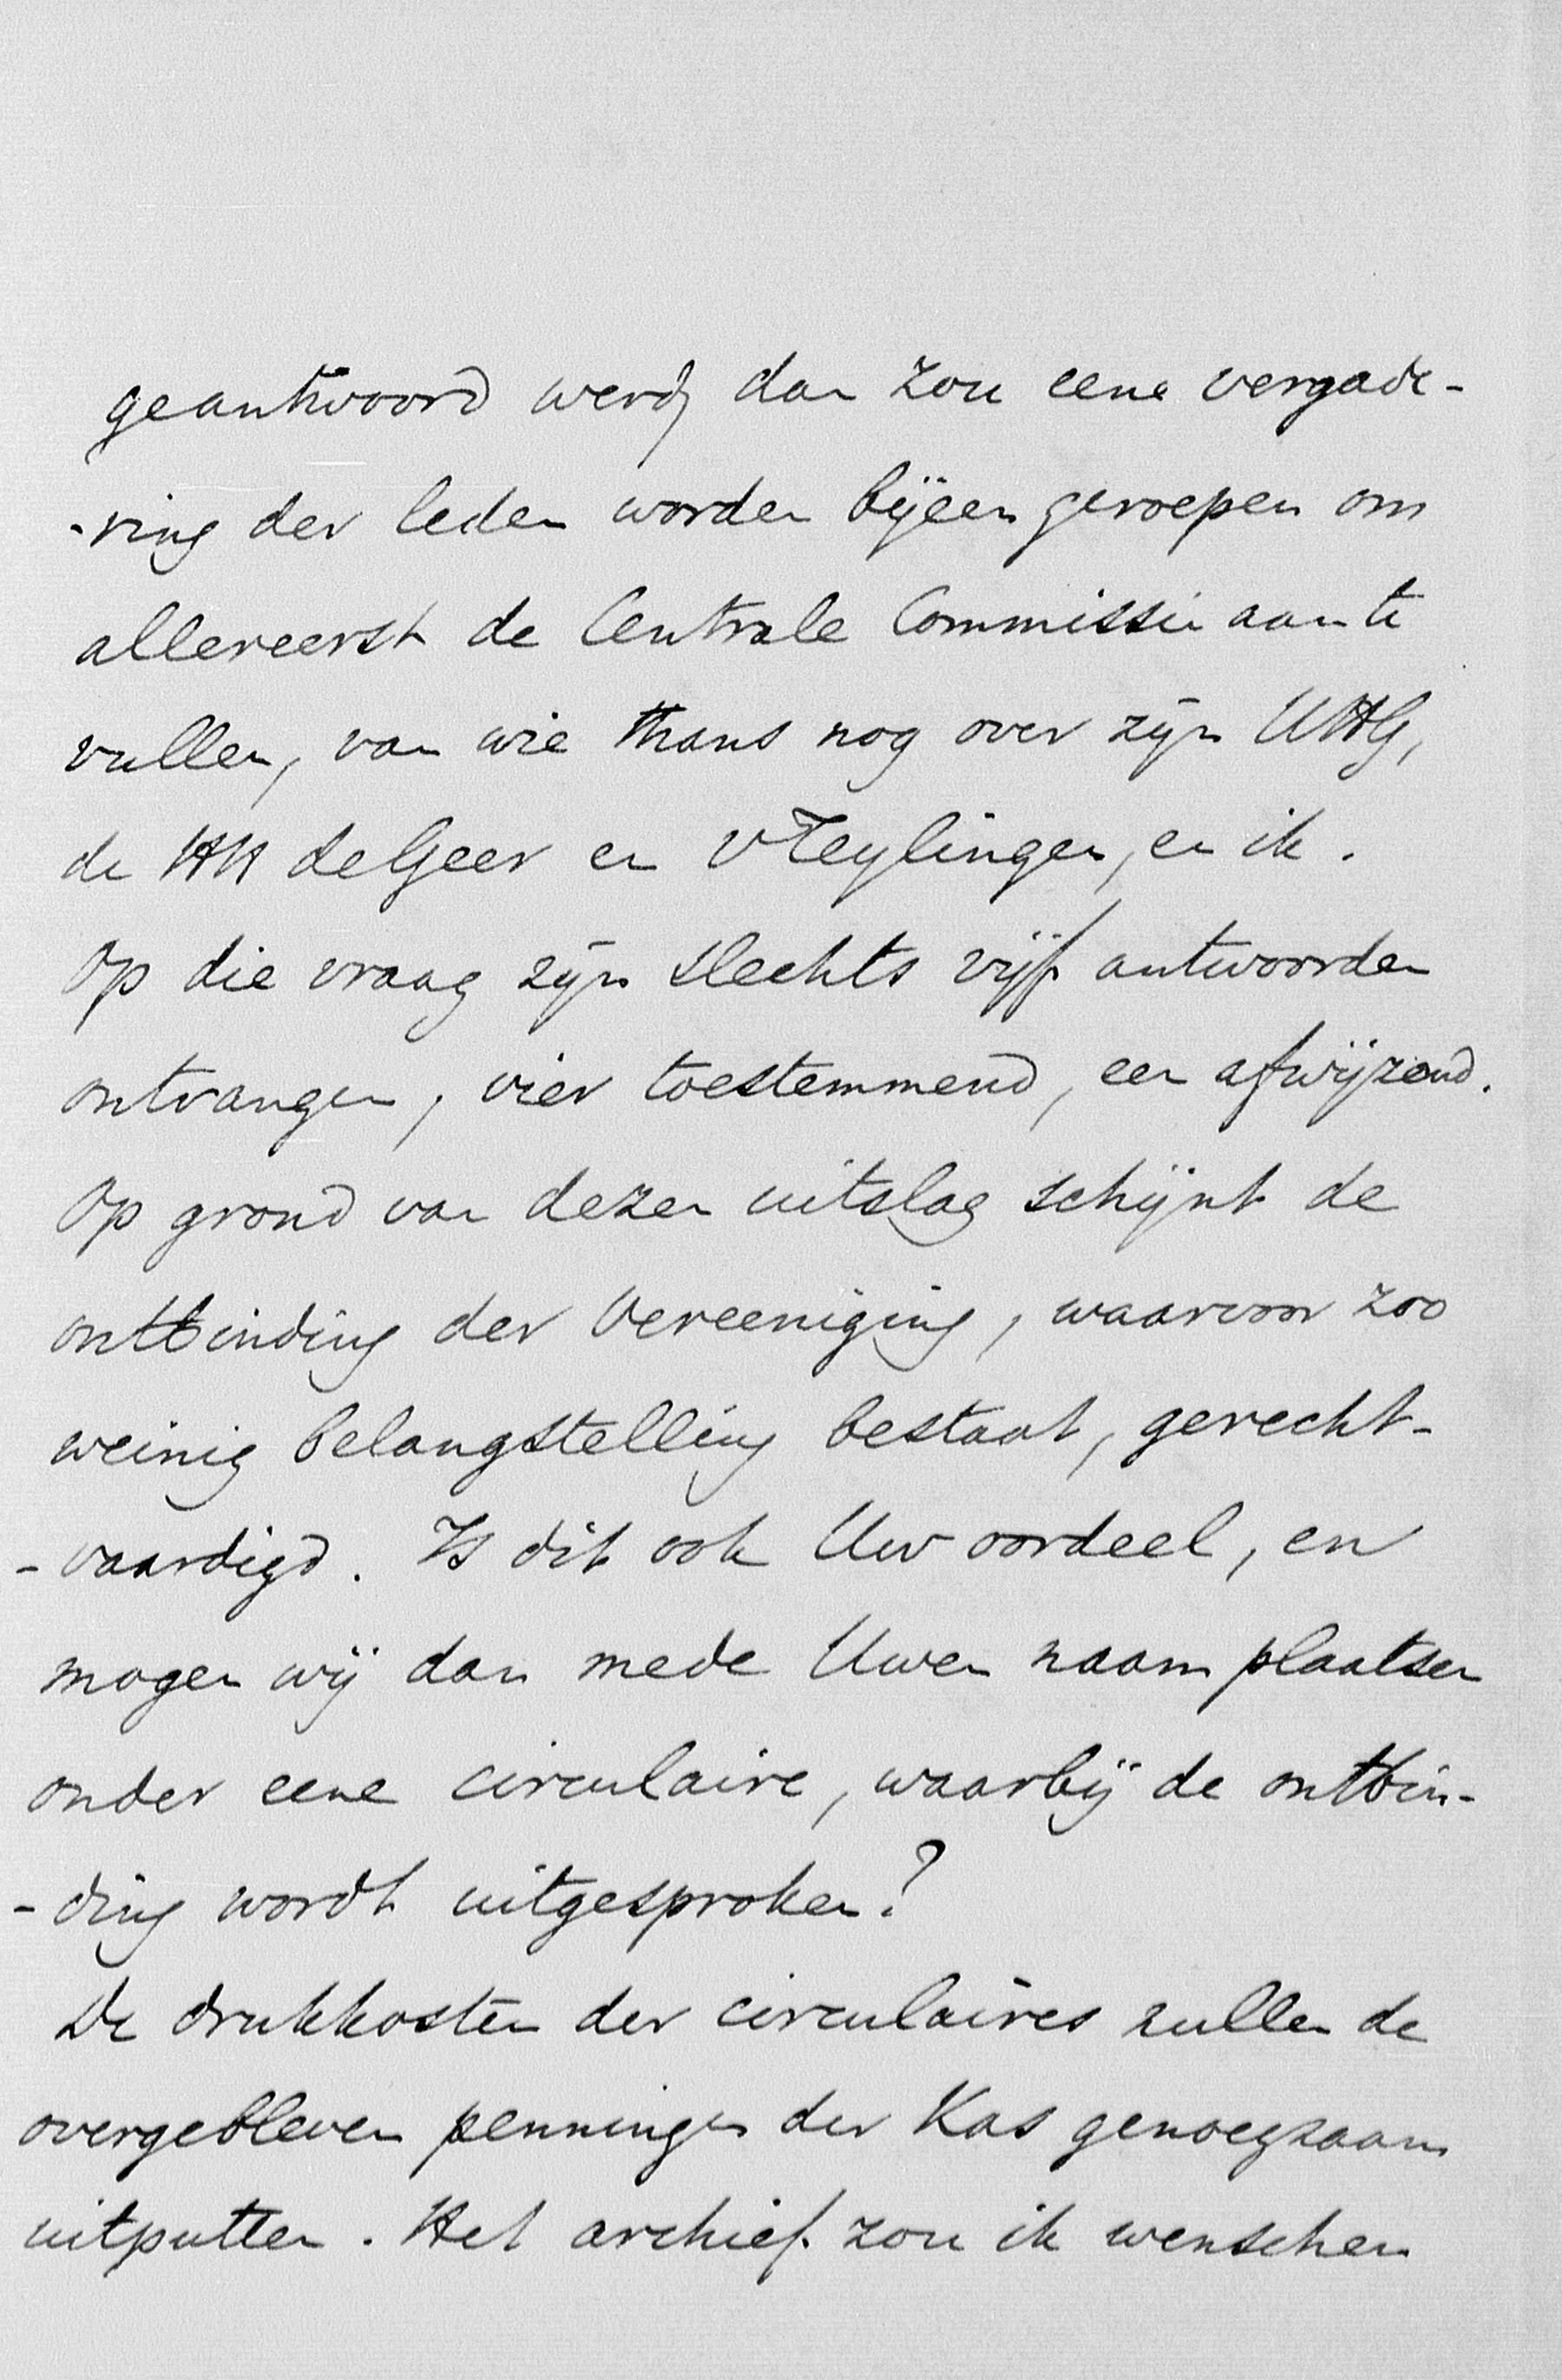 geantwoord werd, dan zou eene vergade-
-ring der leden worden bijeen geroepen om
allereerst de Centrale Commissie aan te
vullen, van wie thans nog over zijn UHG,
de HH de Geer en v Teylingen, en ik.
Op die vraag zijn slechts vijf antwoorden
ontvangen, vier toestemmend, een afwijzend.
Op grond van dezen uitslag schijnt de
ontbinding der Vereeniging, waarvoor zoo
weinig belangstelling bestaat, gerecht-
-vaardigd. Is dit ook Uw oordeel, en
mogen wij dan mede Uwen naam plaatsen
onder eene circulaire, waarbij de ontbin-
-ding wordt uitgesproken?
De drukkosten der circulaires zullen de
overgebleven penningen der Kas genoegzaam
uitputten. Het archief zou ik wenschen